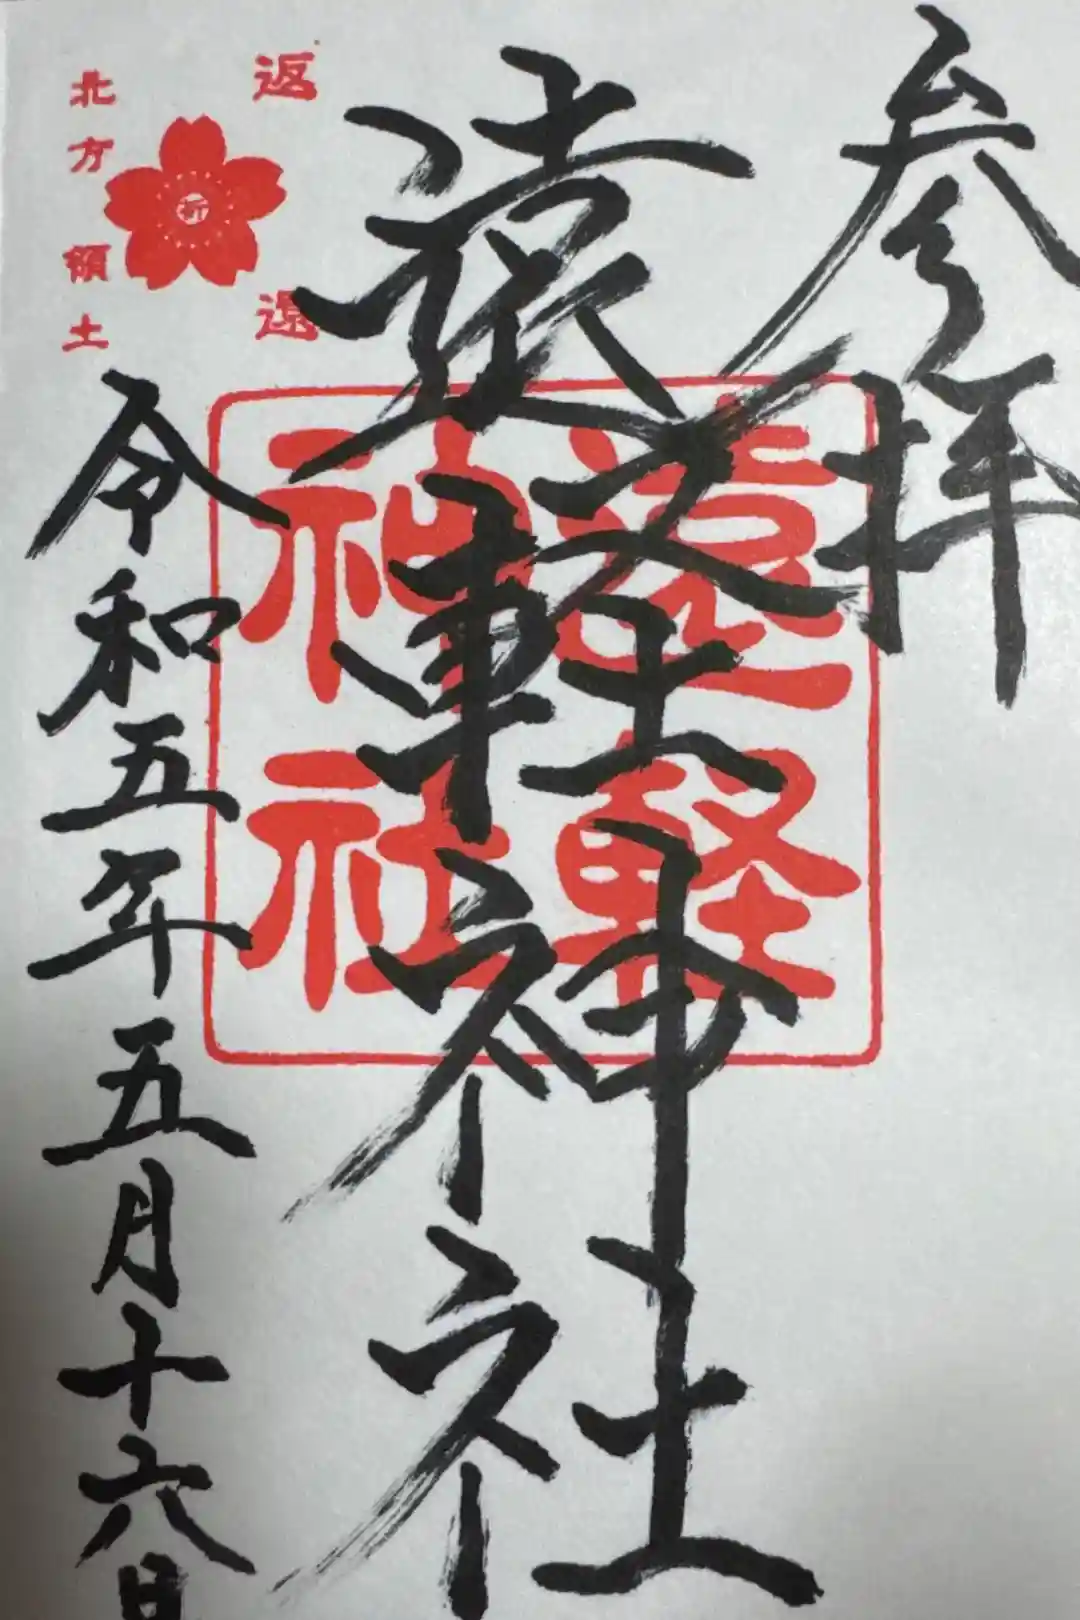 参拝
遠軽神社
遠軽
神社
返還
祈
北方領土
令和五年五月十六日